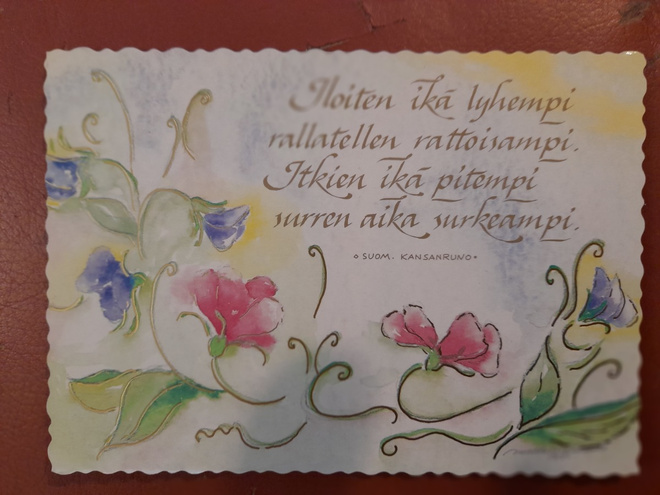 Iloiten ikä lyhempi
rallatellen rattoisampi.
Itkien ikä pitempi
surren aika surkeampi.
° SUOM. KANSANRUNO °